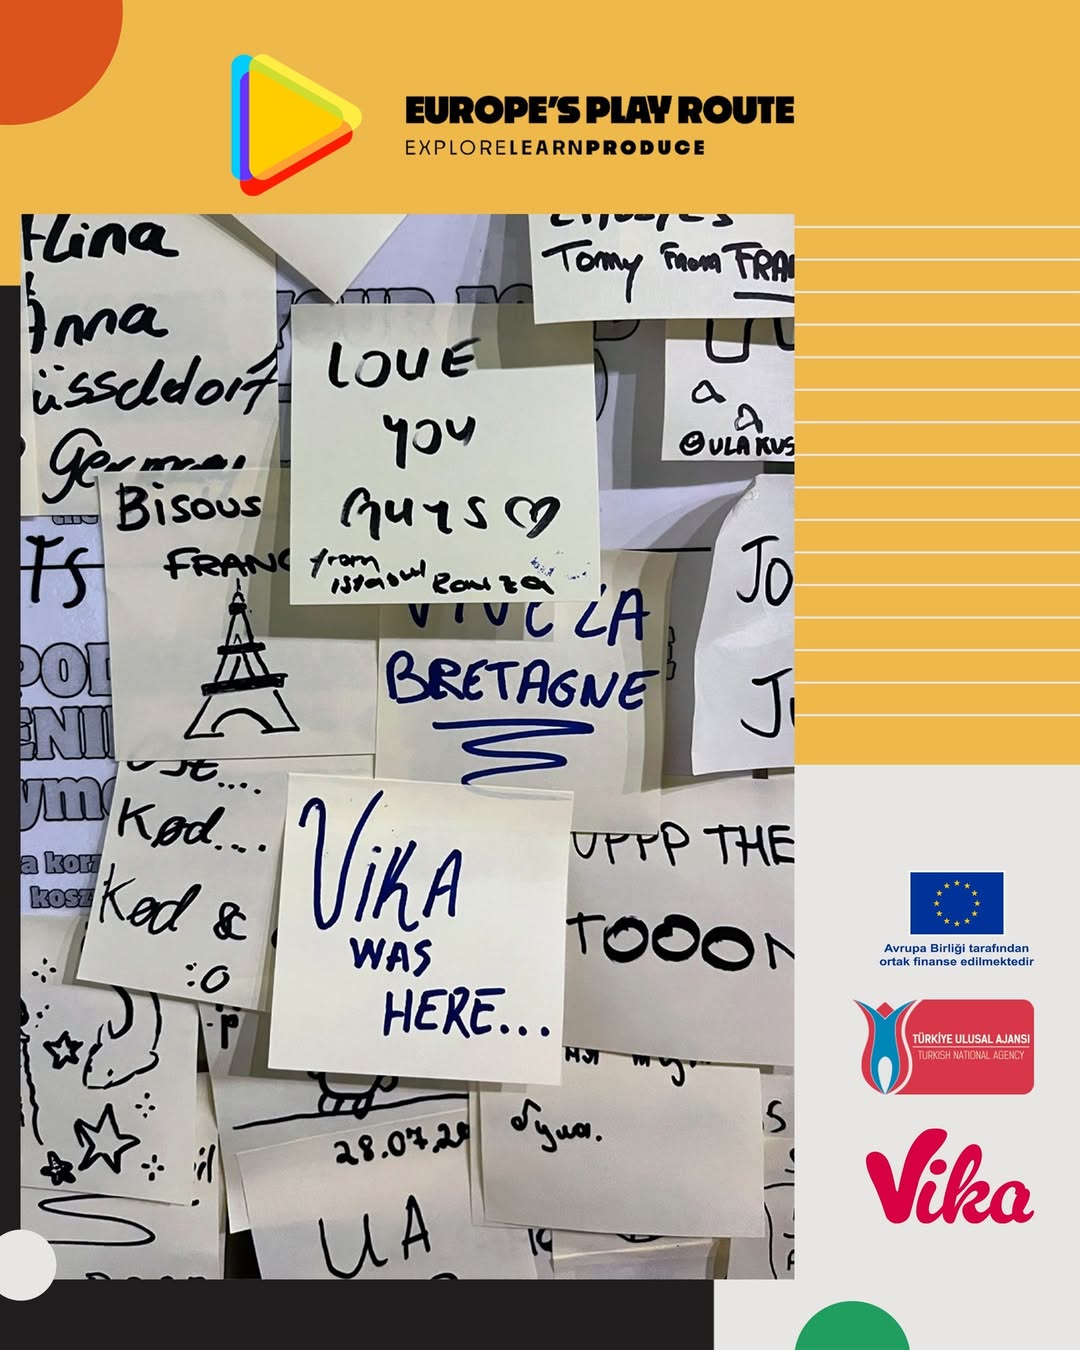 EUROPE'S PLAY ROUTE
EXPLORELEARNPRODUCE
Tomy From FRAN
Anna
üsseldorf
Germany
LOVE
YOU
GUYS
from
istanbul
@ULAKUS
Bisous
FRANC
VIVE LA
BRETAGNE
TS
JO
Kød...
Kød &
:O
VIKA
WAS
HERE...
UPPP THE
TOOON
28.07.20
UA
Avrupa Birliği tarafından
ortak finanse edilmektedir
TÜRKİYE ULUSAL AJANSI
TURKISH NATIONAL AGENCY
Vika